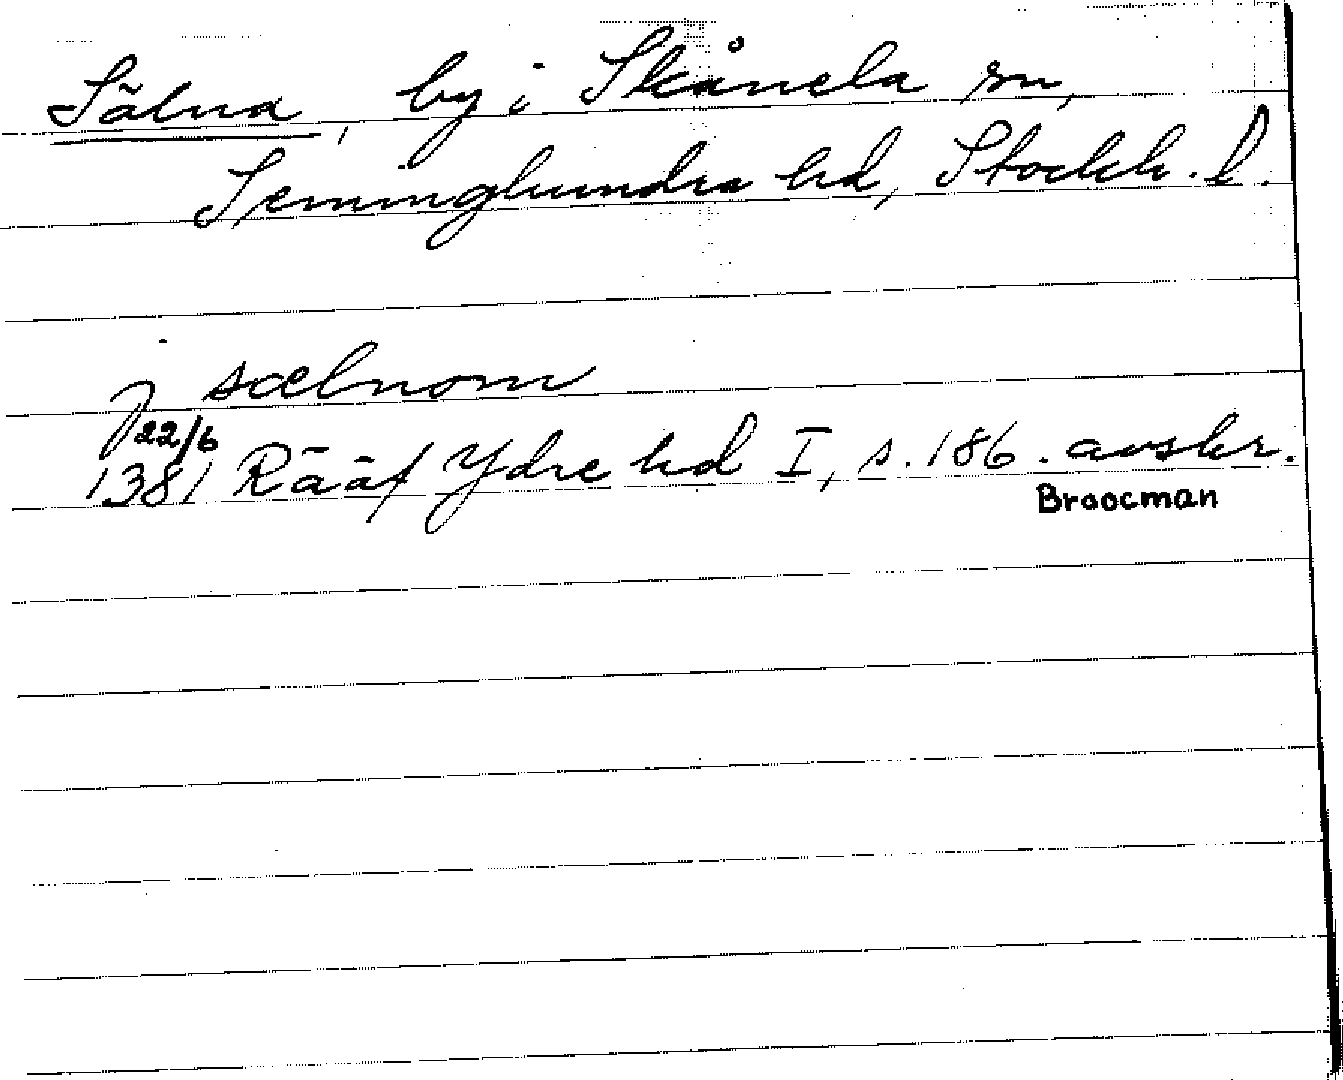 Sälna, by i Skånela sn,
Seminghundra hd, Stockh. l.
J sælnom
22/6
1381 Rääf Ydre hd I, s. 186. avskr.
Broocman